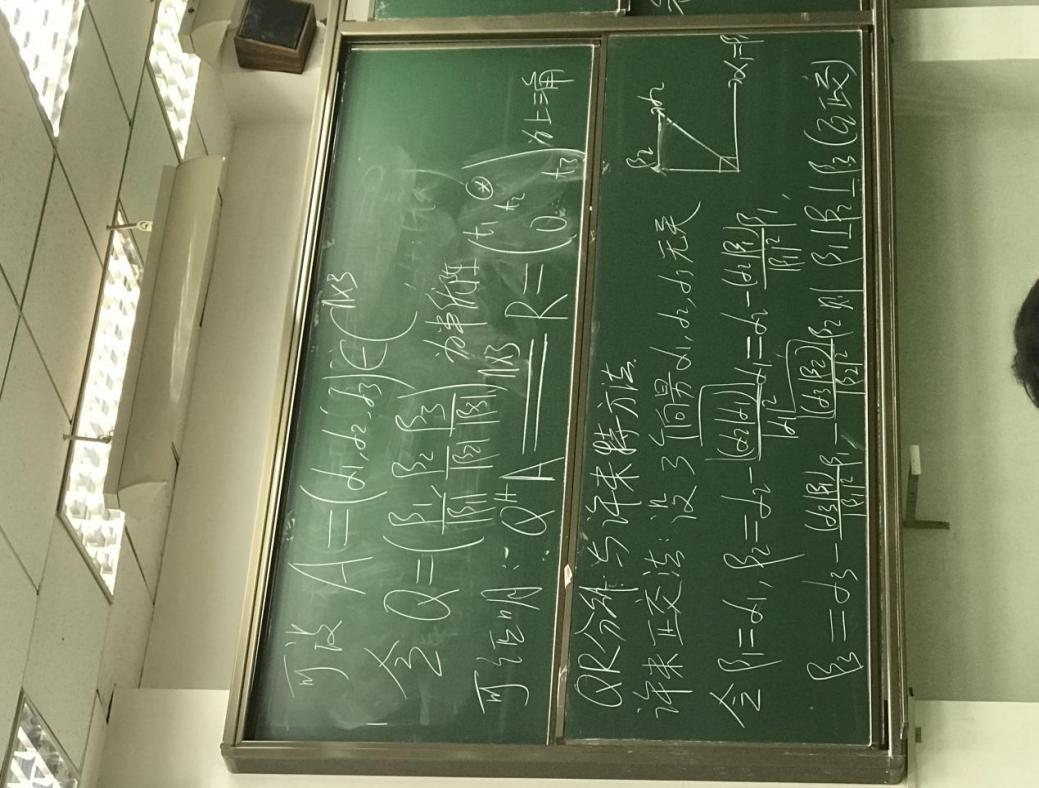 可设 A=(α1,α2,α3)∈C^{n×3}
令 Q=(β1/|β1| β2/|β2| β3/|β3|)n×3 为半酉阵
可验证: Q^H A = R = (t1 t2 ⊛ 0 t3) 为上三角
QR分解与许米特方法.
许米正交法: 设3个向量α1,α2,α3无关
令 β1=α1, β2=α2-(α2|α1)/|α1|² α1=α2-(α2|β1)/|β1|² β1,
β3=α3-(α3|β1)/|β1|² β1-(α3|β2)/|β2|² β2 则 β1⊥β2⊥β3 (互正交)
β2
α2
α1=β1